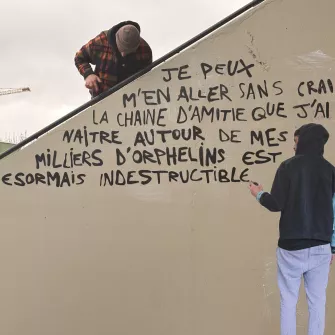 JE PEUX
M'EN ALLER SANS CRAI
LA CHAINE D'AMITIE QUE J'AI
NAÎTRE AUTOUR DE MES
MILLIERS D'ORPHELINS EST
ESORMAIS INDESTRUCTIBLE